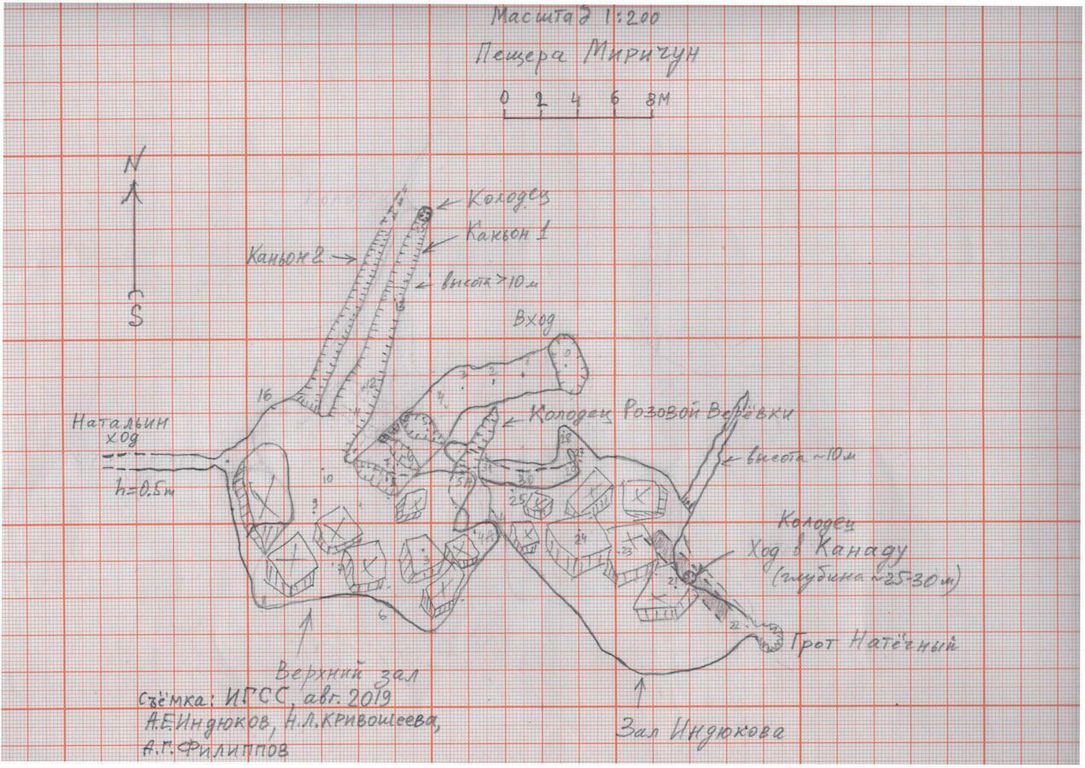 Масштаб 1:200
Пещера Миричун
0 2 4 6 8м
N
S
Колодец
Каньон 1
Каньон 2
высота >10 м
Вход
16
Натальин
ход
h=0.5m
Колодец Розовой Верёвки
высота ~10м
Колодец
Ход в Канаду
(глубина ~25-30 м)
Грот Натёчный
10
9
30
25
24
23
22
6
Верхний зал
Зал Индюкова
Съёмка: ИГСС, авг. 2019
А.Е.Индюков, Н.Л.Кривошеева,
А.Г.Филиппов